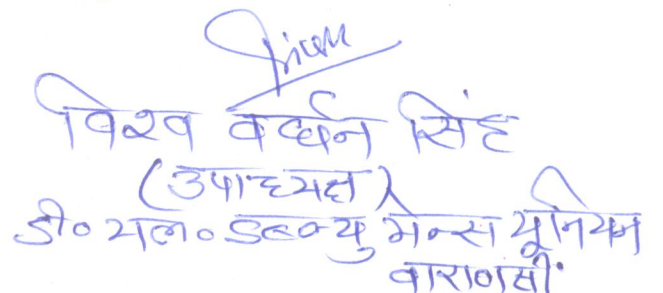 विश्व वर्धन सिंह
(उपाध्यक्ष)
डी० यल० डब्ल्यु मेन्स यूनियन
वाराणसी